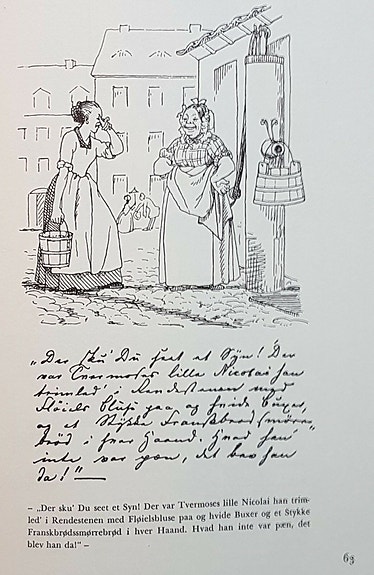 „Der sku' Du seet et Syn! Der
var Tvermoses lille Nicolai han
trimled' i Rendestenen med
Fløiels bluse paa og hvide Buxer,
og et Stykke Franskbrødssmørre-
brød i hver Haand. Hvad han
inte var pæn, det blev han
da!" —
– „Der sku' Du seet et Syn! Der var Tvermoses lille Nicolai han trim-
led' i Rendestenen med Fløielsbluse paa og hvide Buxer og et Stykke
Franskbrødssmørrebrød i hver Haand. Hvad han inte var pæn, det
blev han da!" –
63